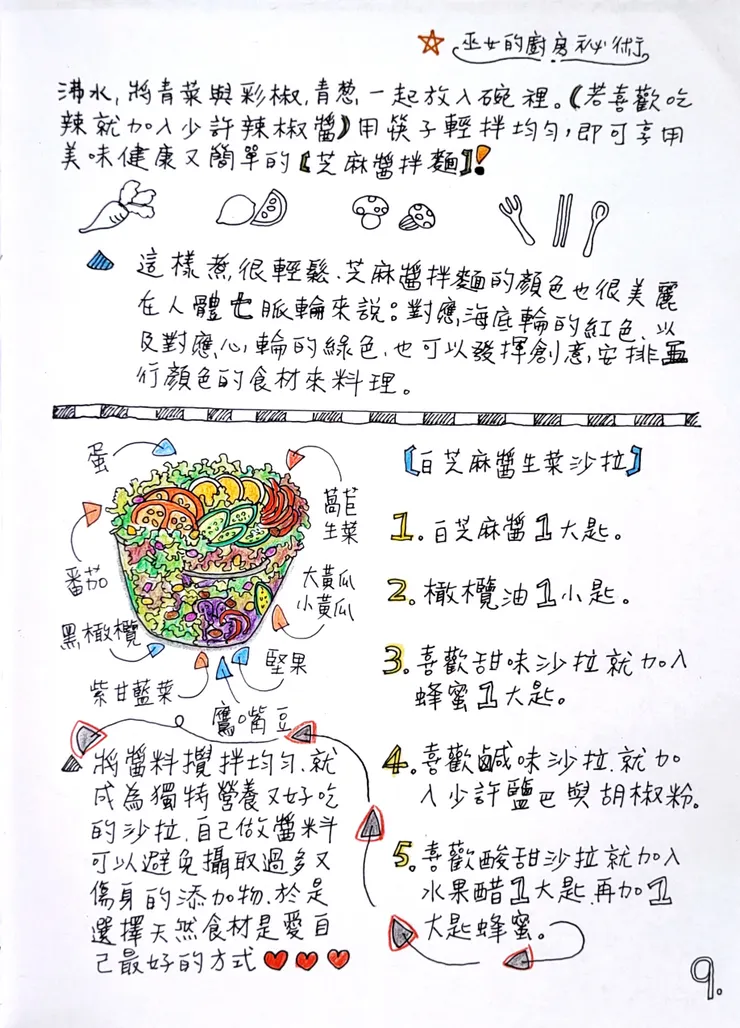 巫女的廚房祕術
沸水，將青菜與彩椒，青葱，一起放入碗裡。(若喜歡吃
辣就加入少許辣椒醬)用筷子輕拌均勻，即可享用
美味健康又簡單的【芝麻醬拌麵】!
這樣煮很輕鬆、芝麻醬拌麵的顏色也很美麗
在人體七脈輪來說：對應海底輪的紅色、以
及對應心輪的綠色、也可以發揮創意，安排五
行顏色的食材來料理。
蛋
番茄
黑橄欖
紫甘藍菜
鷹嘴豆
堅果
大黃瓜
小黃瓜
萵苣
生菜
將醬料攪拌均勻、就
成為獨特營養又好吃
的沙拉、自己做醬料
可以避免攝取過多又
傷身的添加物、於是
選擇天然食材是愛自
己最好的方式
【白芝麻醬生菜沙拉】
1. 白芝麻醬1大匙。
2. 橄欖油1小匙。
3. 喜歡甜味沙拉就加入
蜂蜜1大匙。
4. 喜歡鹹味沙拉、就加
入少許鹽巴與胡椒粉。
5. 喜歡酸甜沙拉就加入
水果醋1大匙、再加1
大匙蜂蜜。
9.